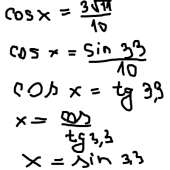 cos x = 3√π / 10
cos x = sin 33 / 10
cos x = tg 39
x = cos / tg 3,3
x = sin 3,3